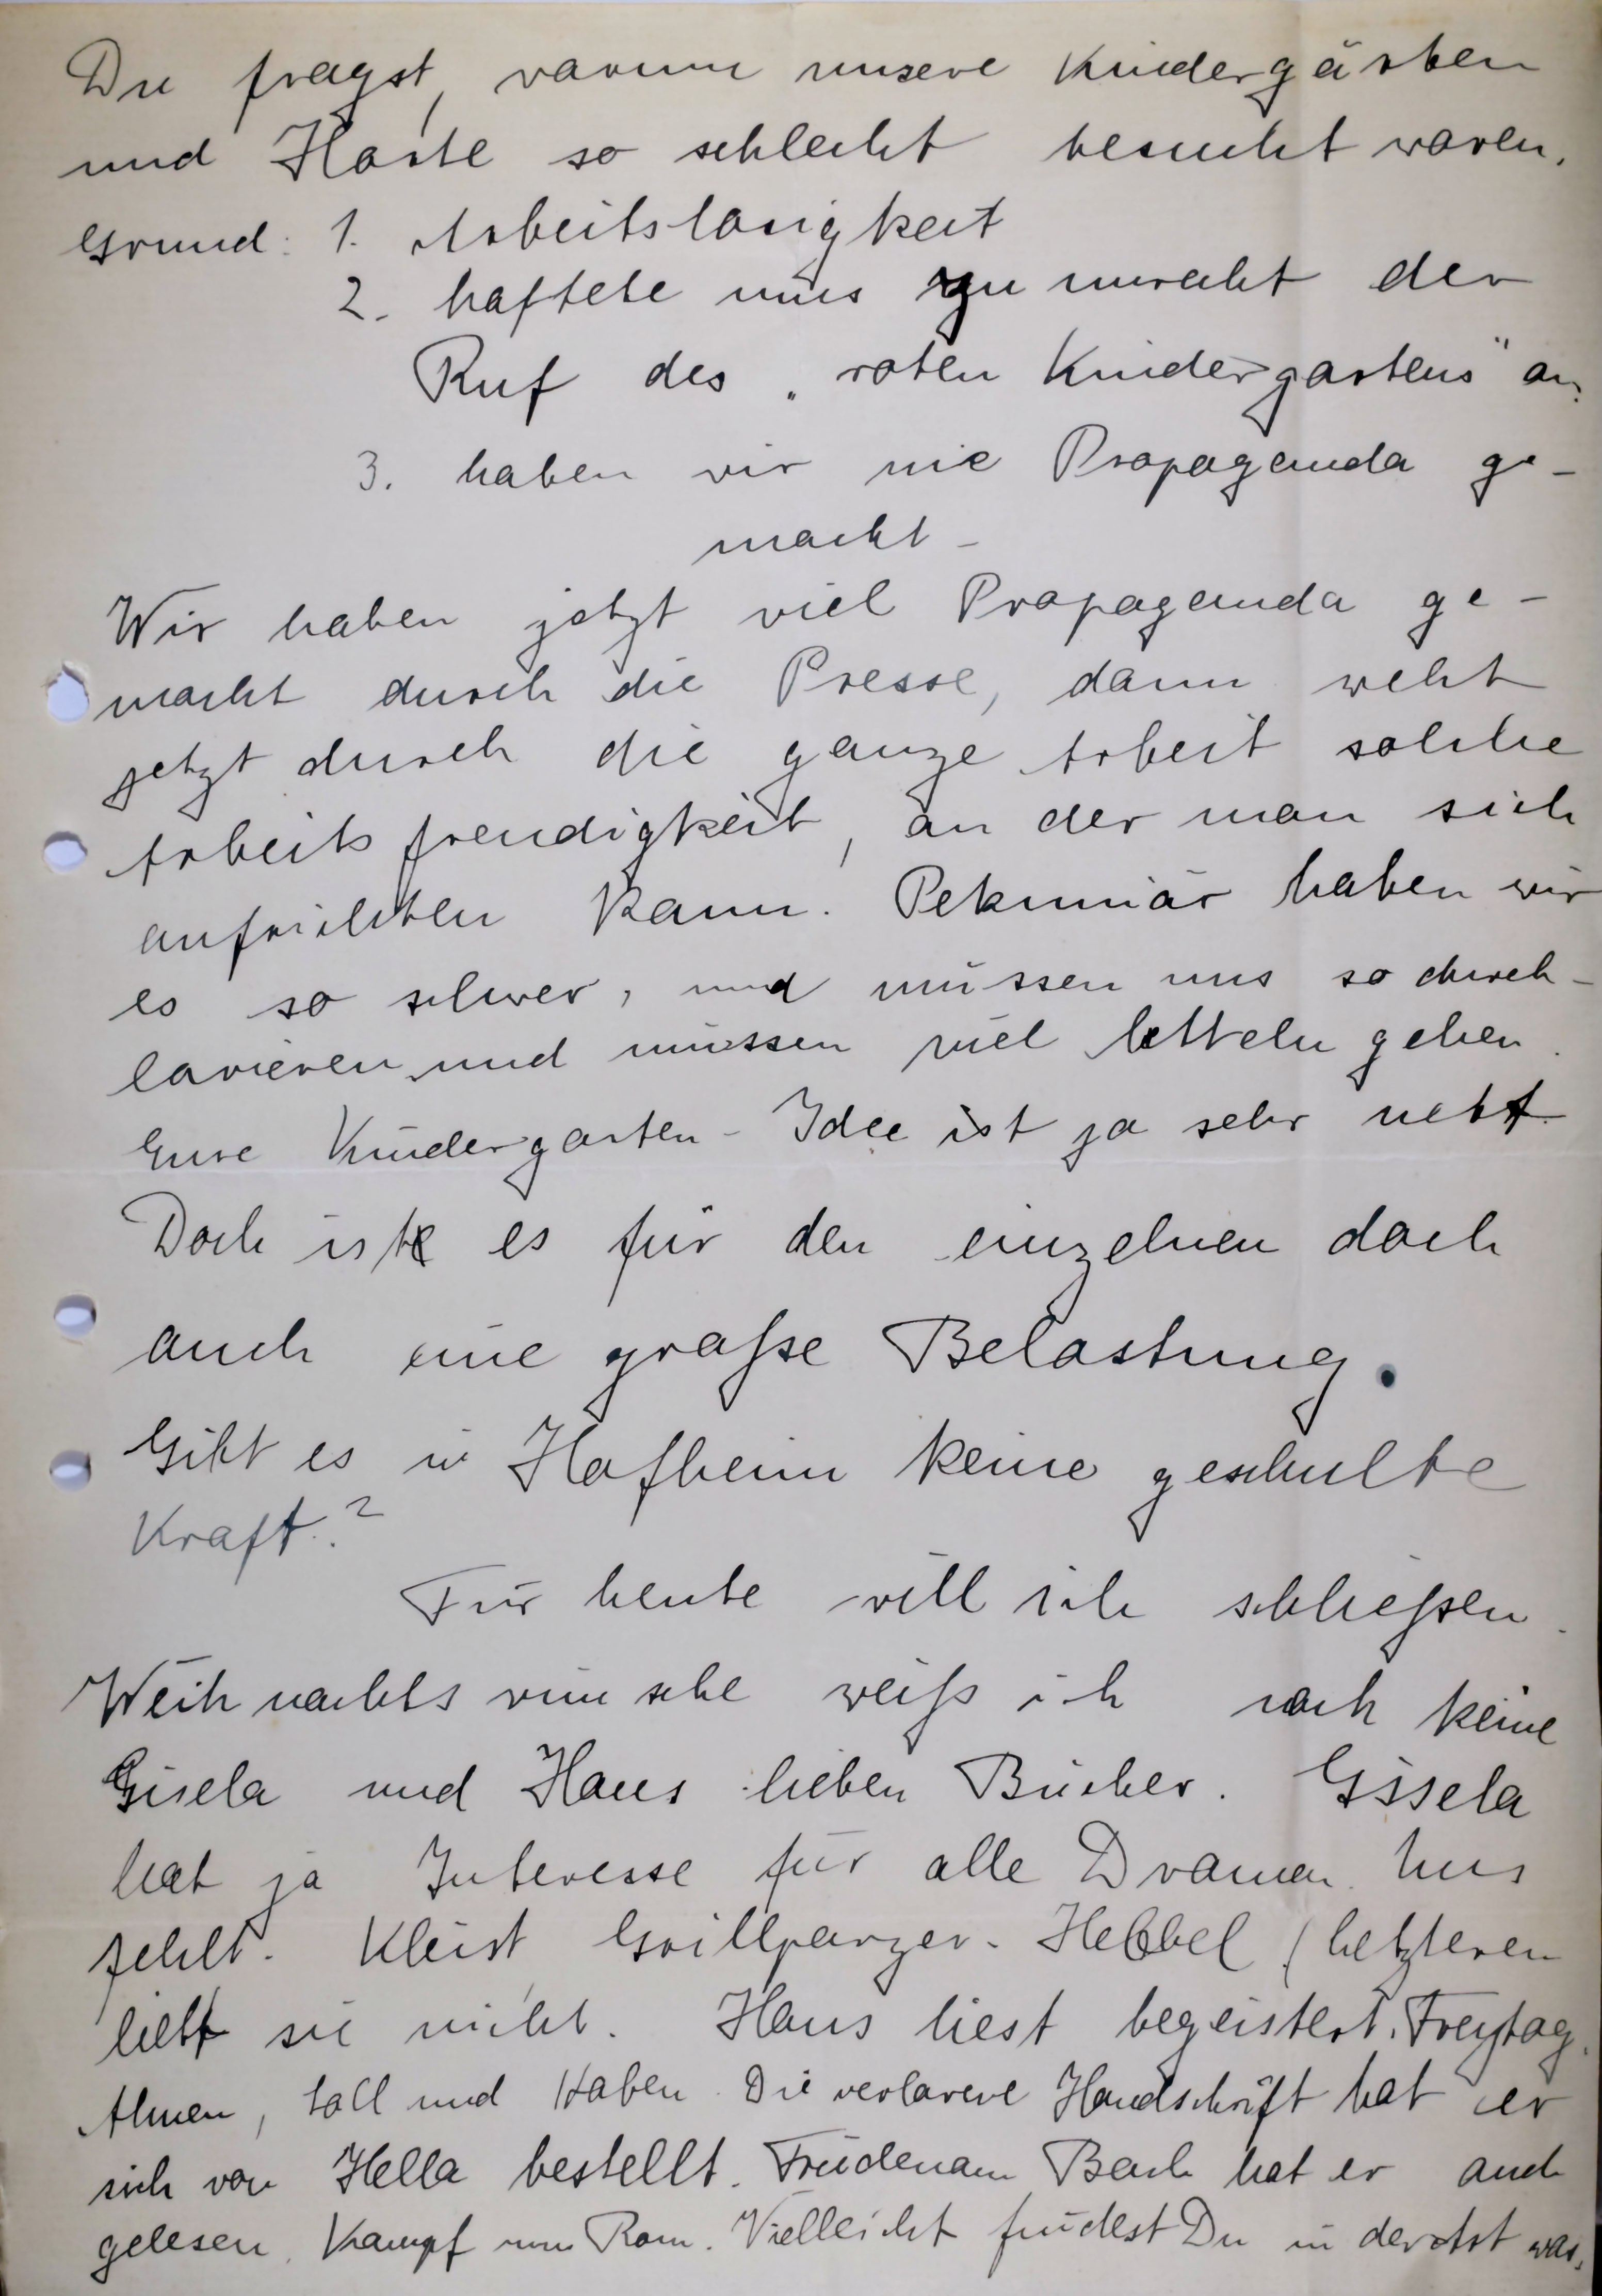 Du fragst, warum unsere Kindergärten
und Horte so schlecht besucht waren.
Grund: 1. Arbeitslosigkeit
2. haftete uns zu unrecht der
Ruf des „roten Kindergartens" an.
3. haben wir nie Propaganda ge-
macht -
Wir haben jetzt viel Propaganda ge-
macht durch die Presse, dann weht
jetzt durch die ganze Arbeit solche
Arbeitsfreudigkeit, an der man sich
aufrichten kann. Pekuniär haben wir
es so schwer, und müssen uns so durch-
lavieren und müssen viel betteln gehen.
Eure Kindergarten-Idee ist ja sehr nett.
Doch ist es für den einzelnen doch
auch eine große Belastung.
Gibt es in Hofheim keine geschulte
Kraft.?
Für heute will ich schließen.
Weihnachtswünsche weiß ich noch keine
Gisela und Hans lieben Bücher. Gisela
hat ja Interesse für alle Dramen. Uns
fehlt. Kleist Grillparzer. Hebbel (letzteren
liebt sie nicht. Hans liest begeistert. Freytag.
Ahnen, Soll und Haben. Die verlorene Handschrift hat er
sich von Hella bestellt. Friedemann Bach hat er auch
gelesen. Kampf um Rom. Vielleicht findest Du in der Art was.